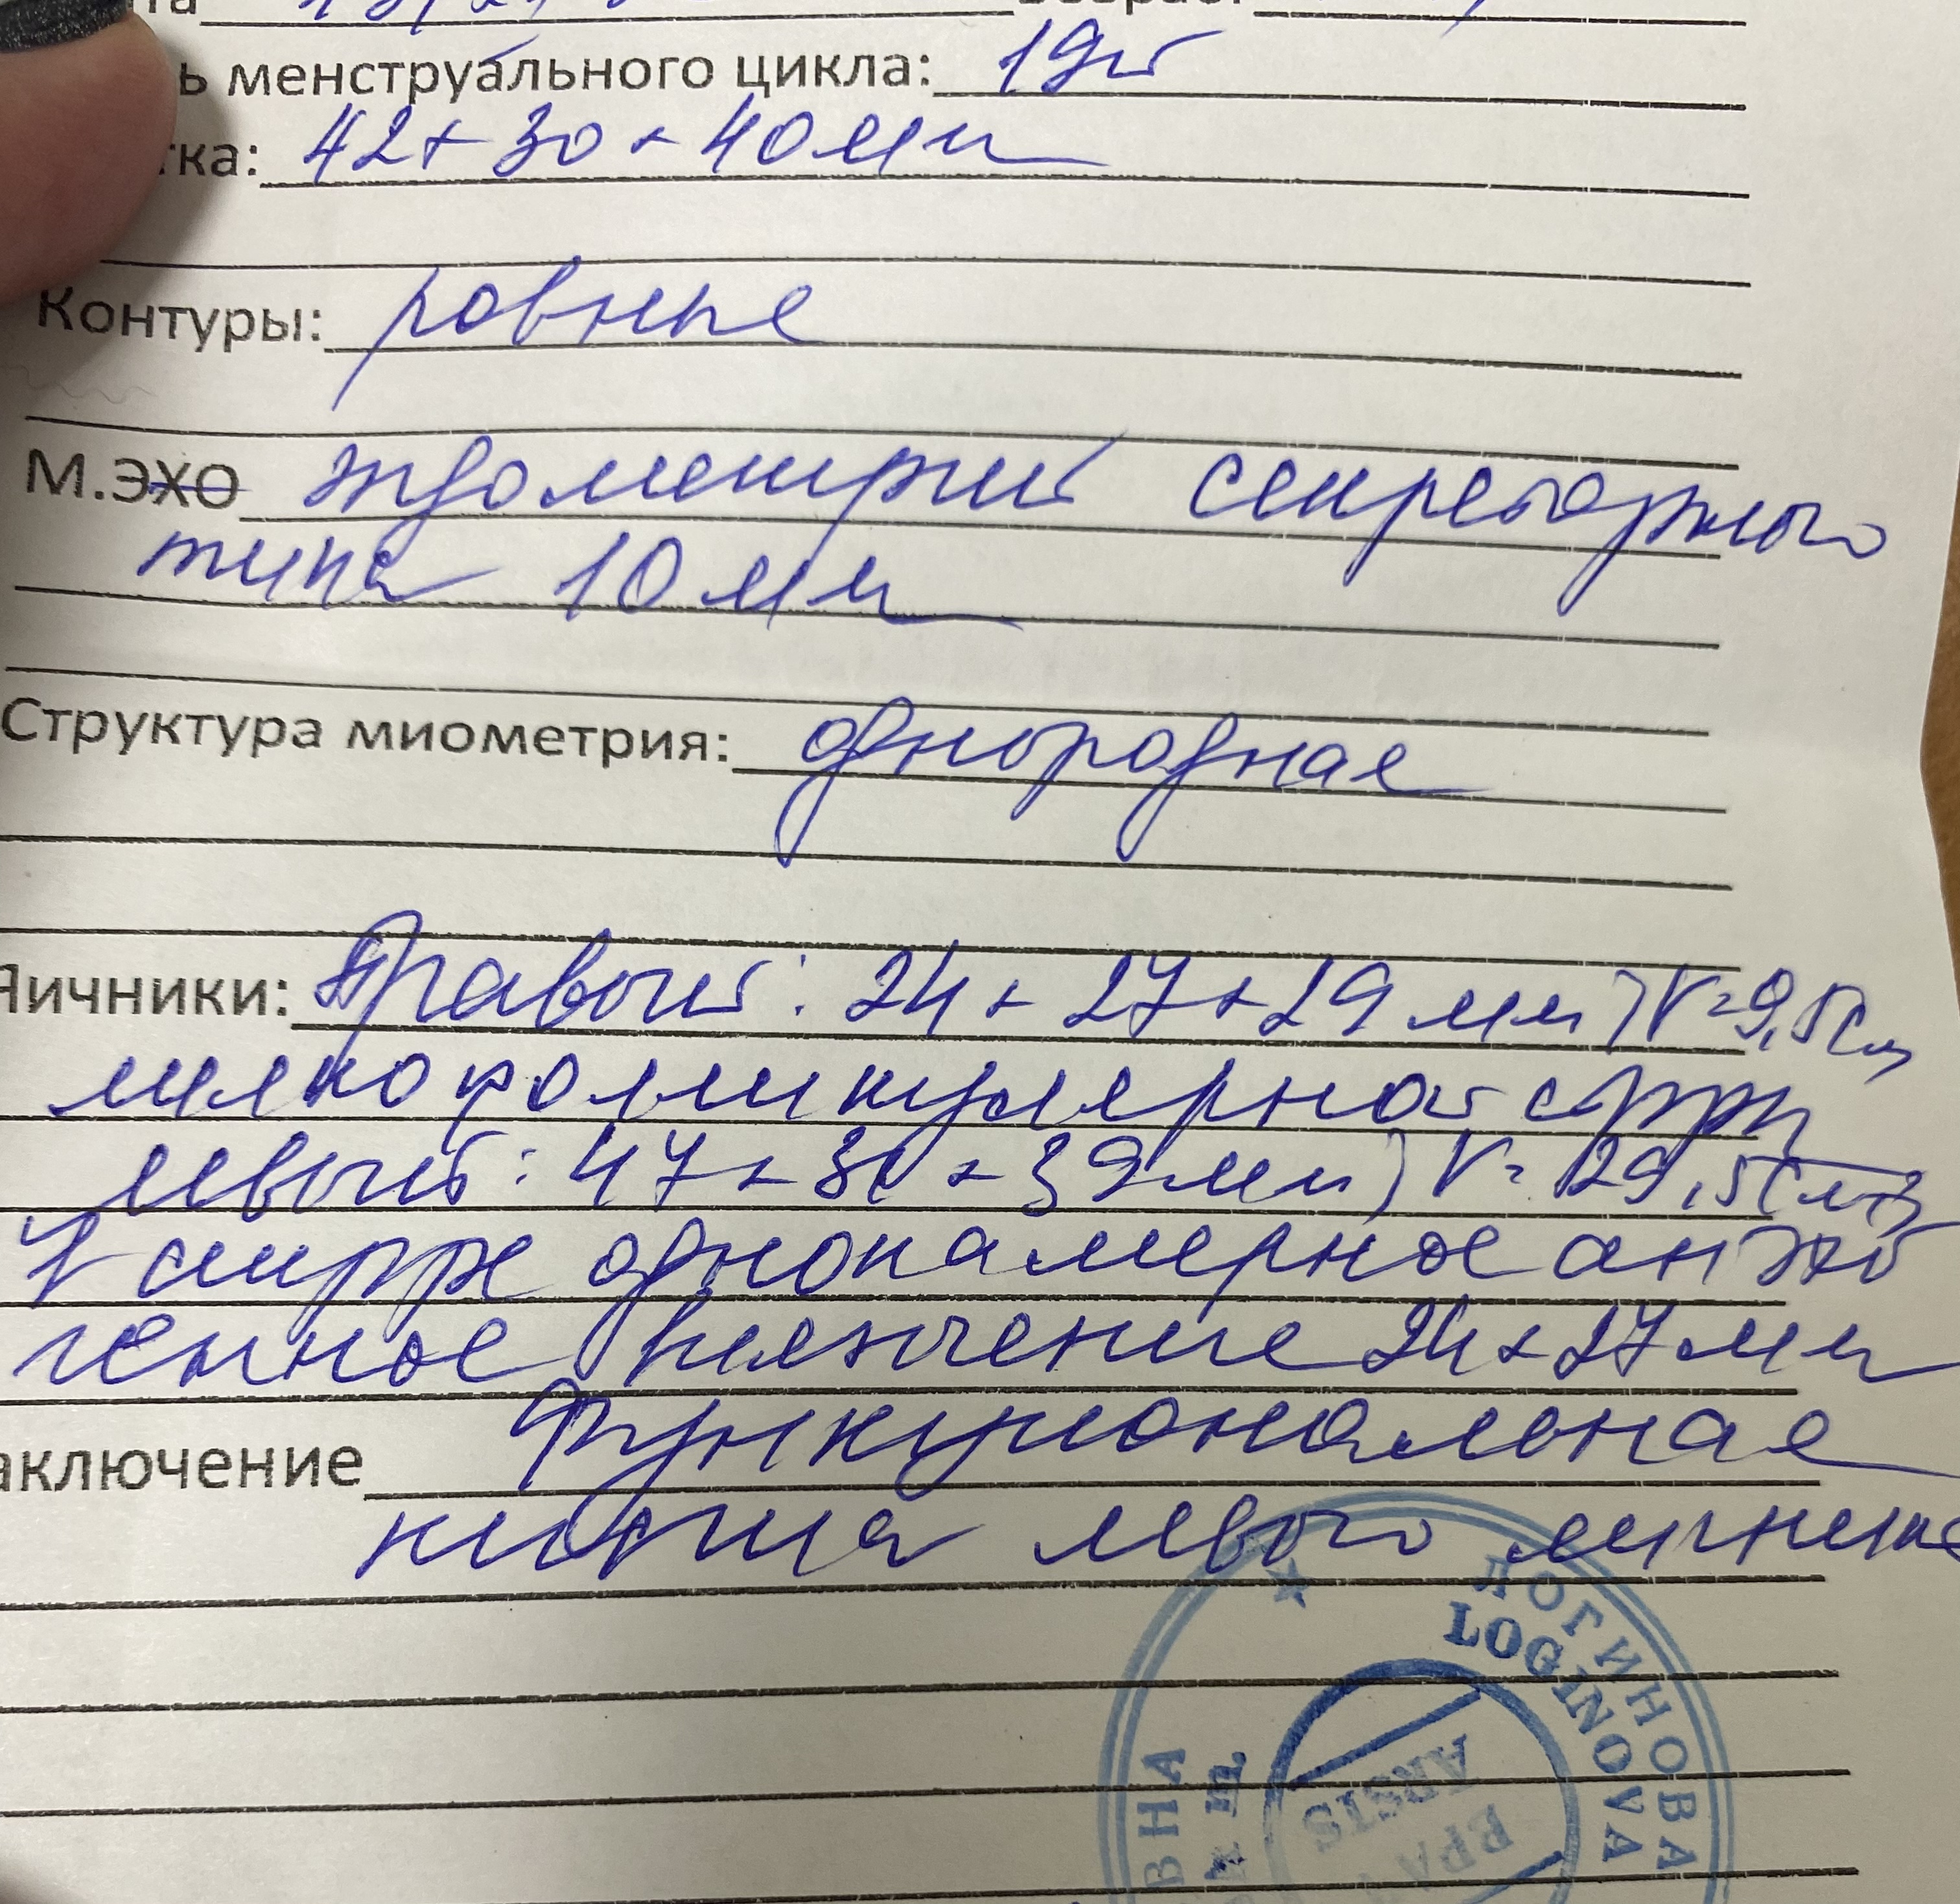 ь менструального цикла: 19й
тка: 42 + 30 + 40 мм
Контуры: ровные
М.ЭХО эндометрий секреторного
типа 10 мм
Структура миометрия: однородная
Яичники: Правый: 24 + 27 + 29 мм V=9,5см
мелкофолликулярной стр
левый: 47 + + 39 мм V= 29,5см3
в стр однокамерное анэхо
генное включение 24 + 27 мм
аключение Функциональная
киста левого яичника
ЛОГИНОВА
LOGINOVA
ARSTS
ВРА
ВНА